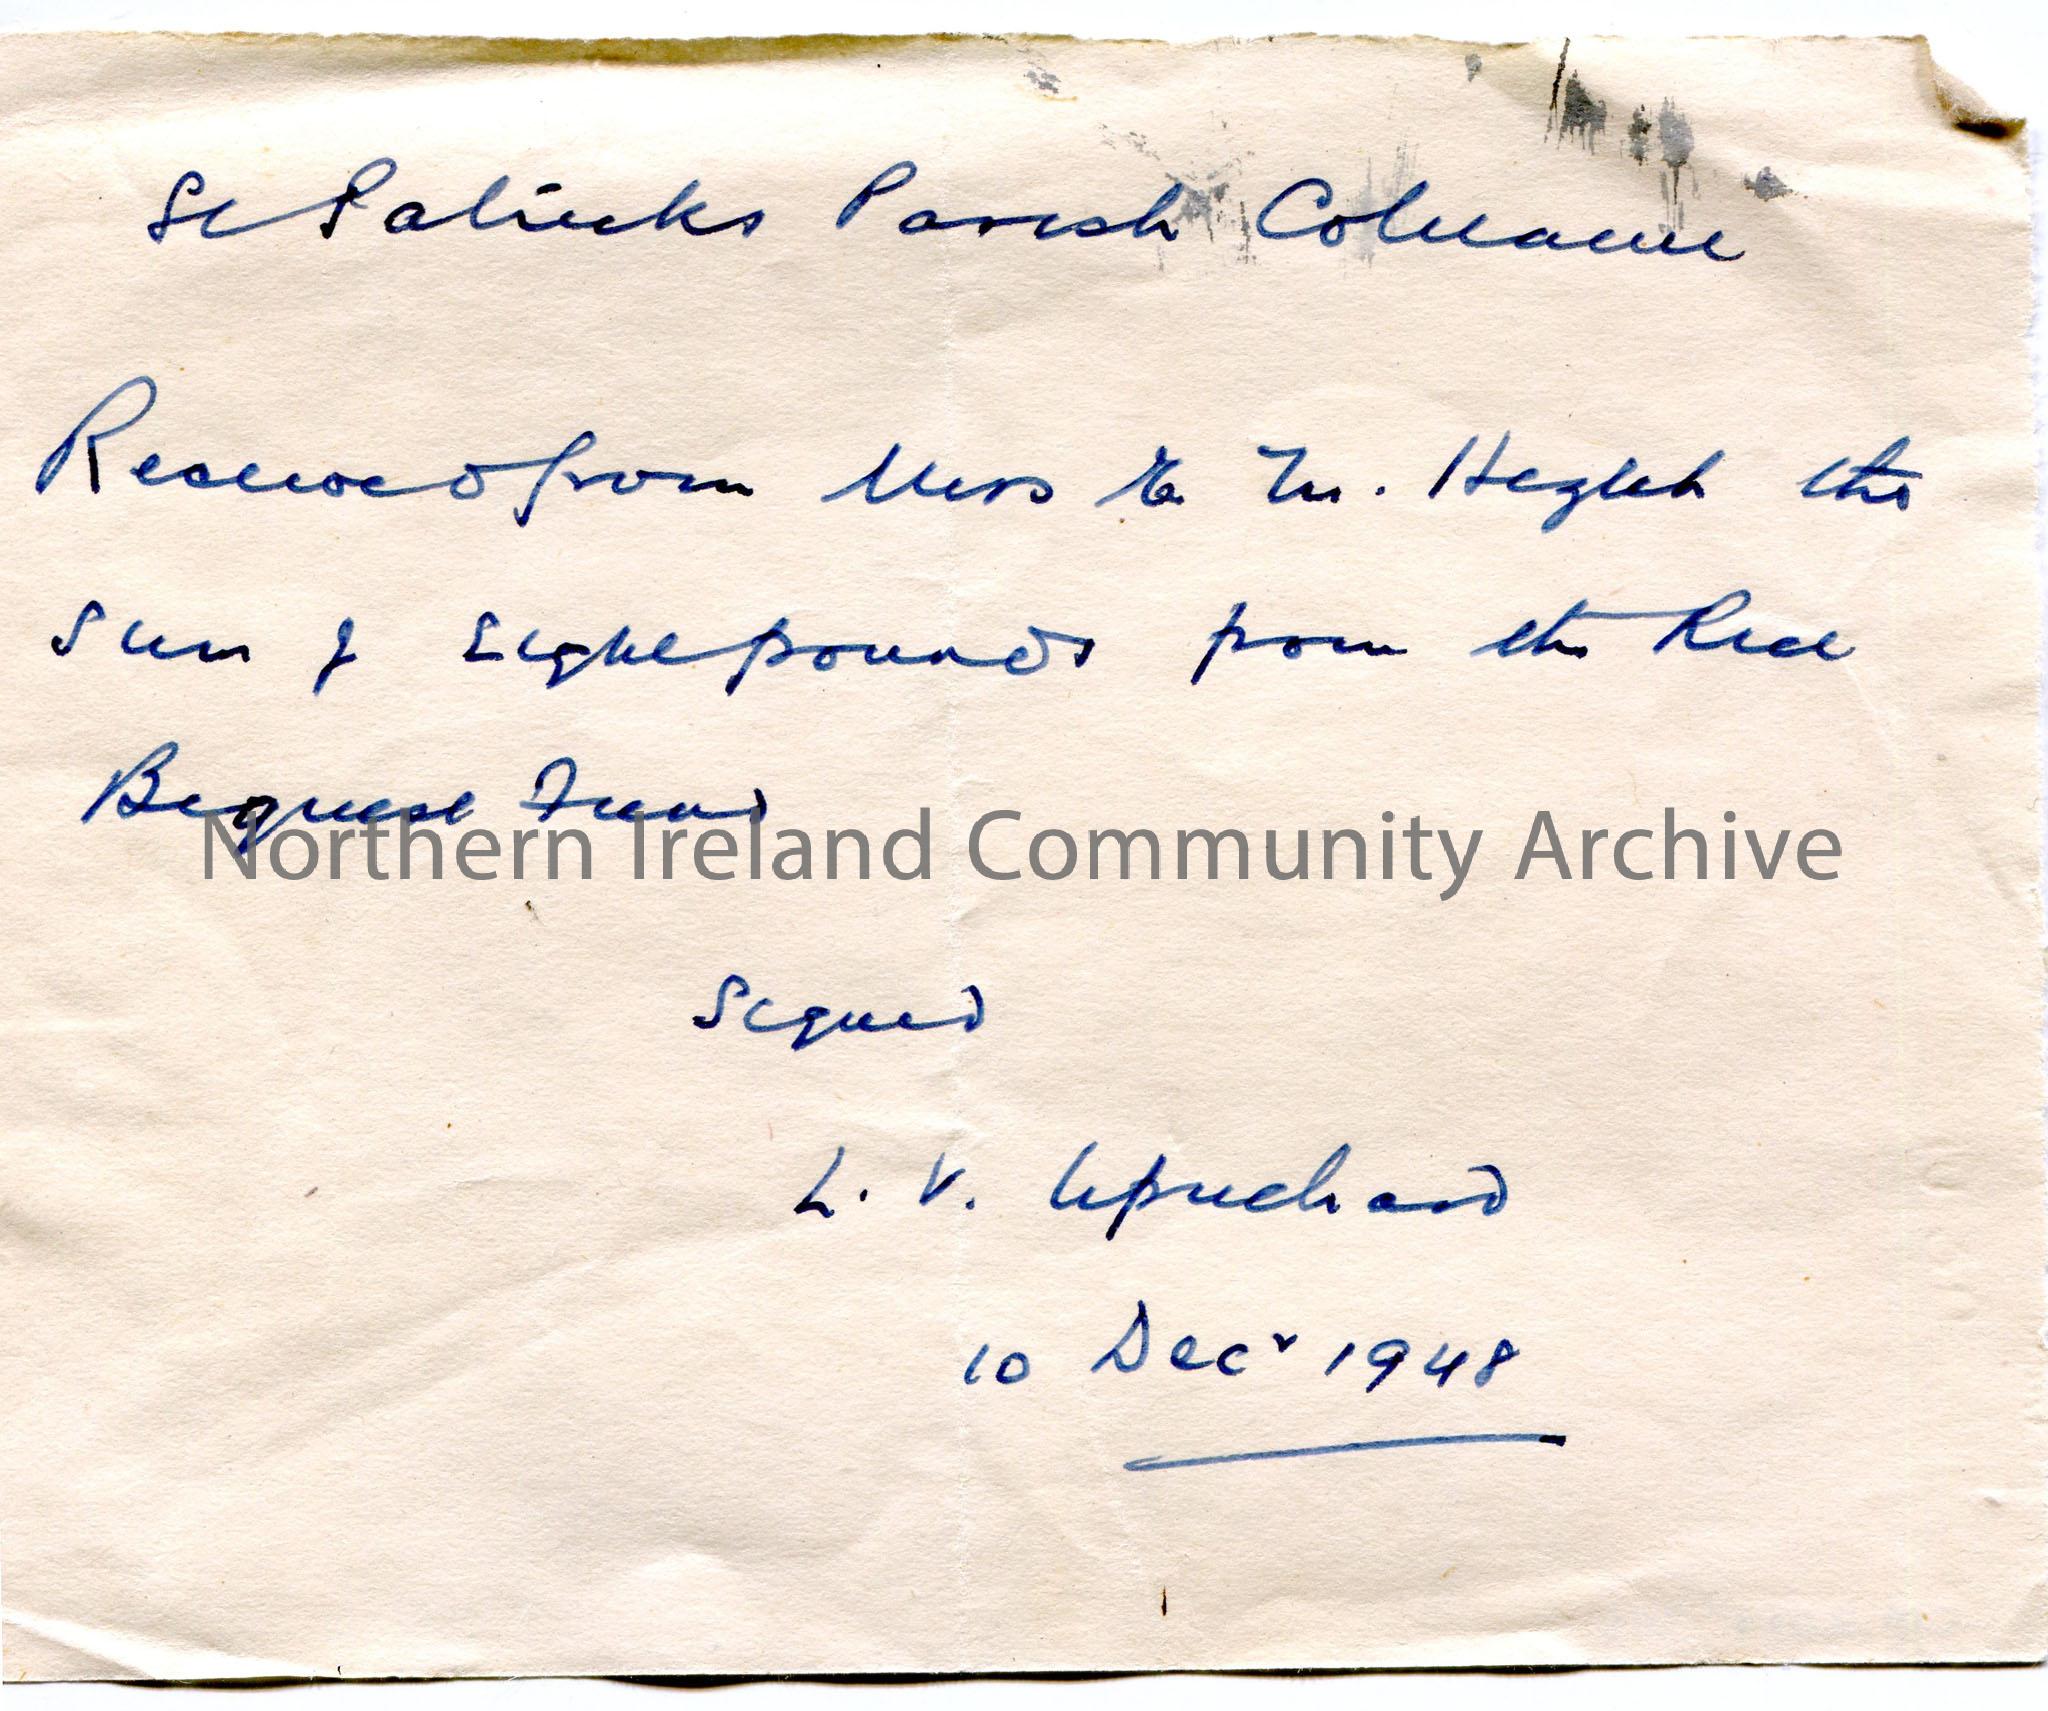 St Patricks Parish Coleraine
Received from Miss E M. Hezlet the
sum of Eight pounds from the
Bequest Fund
Northern Ireland Community Archive
Signed
L. V. Uprichard
10 Decr 1948